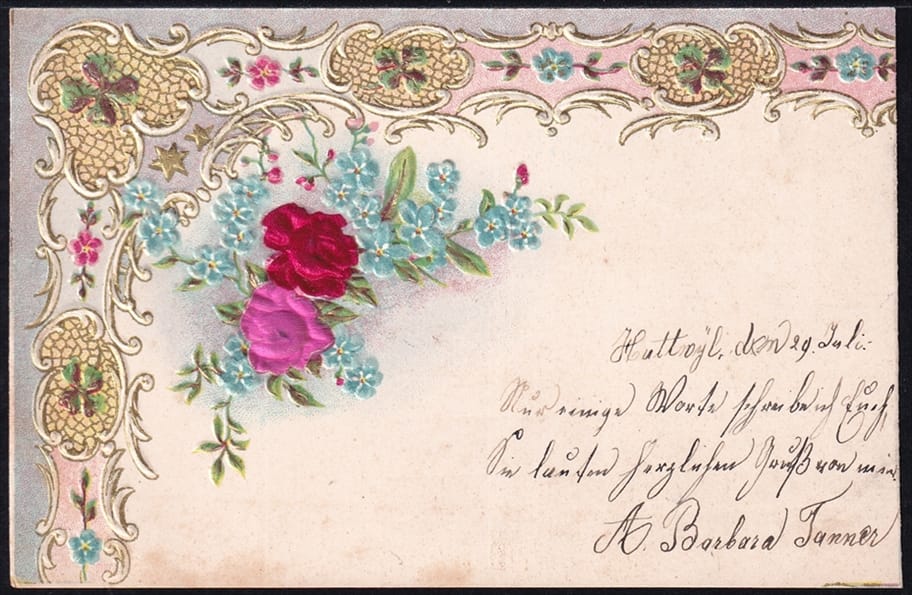 Huttwyl, den 29. Juli.
Nur einige Worte schreibe ich Euch,
Sie lauten herzlichen Gruß von mir.
A. Barbara Tanner